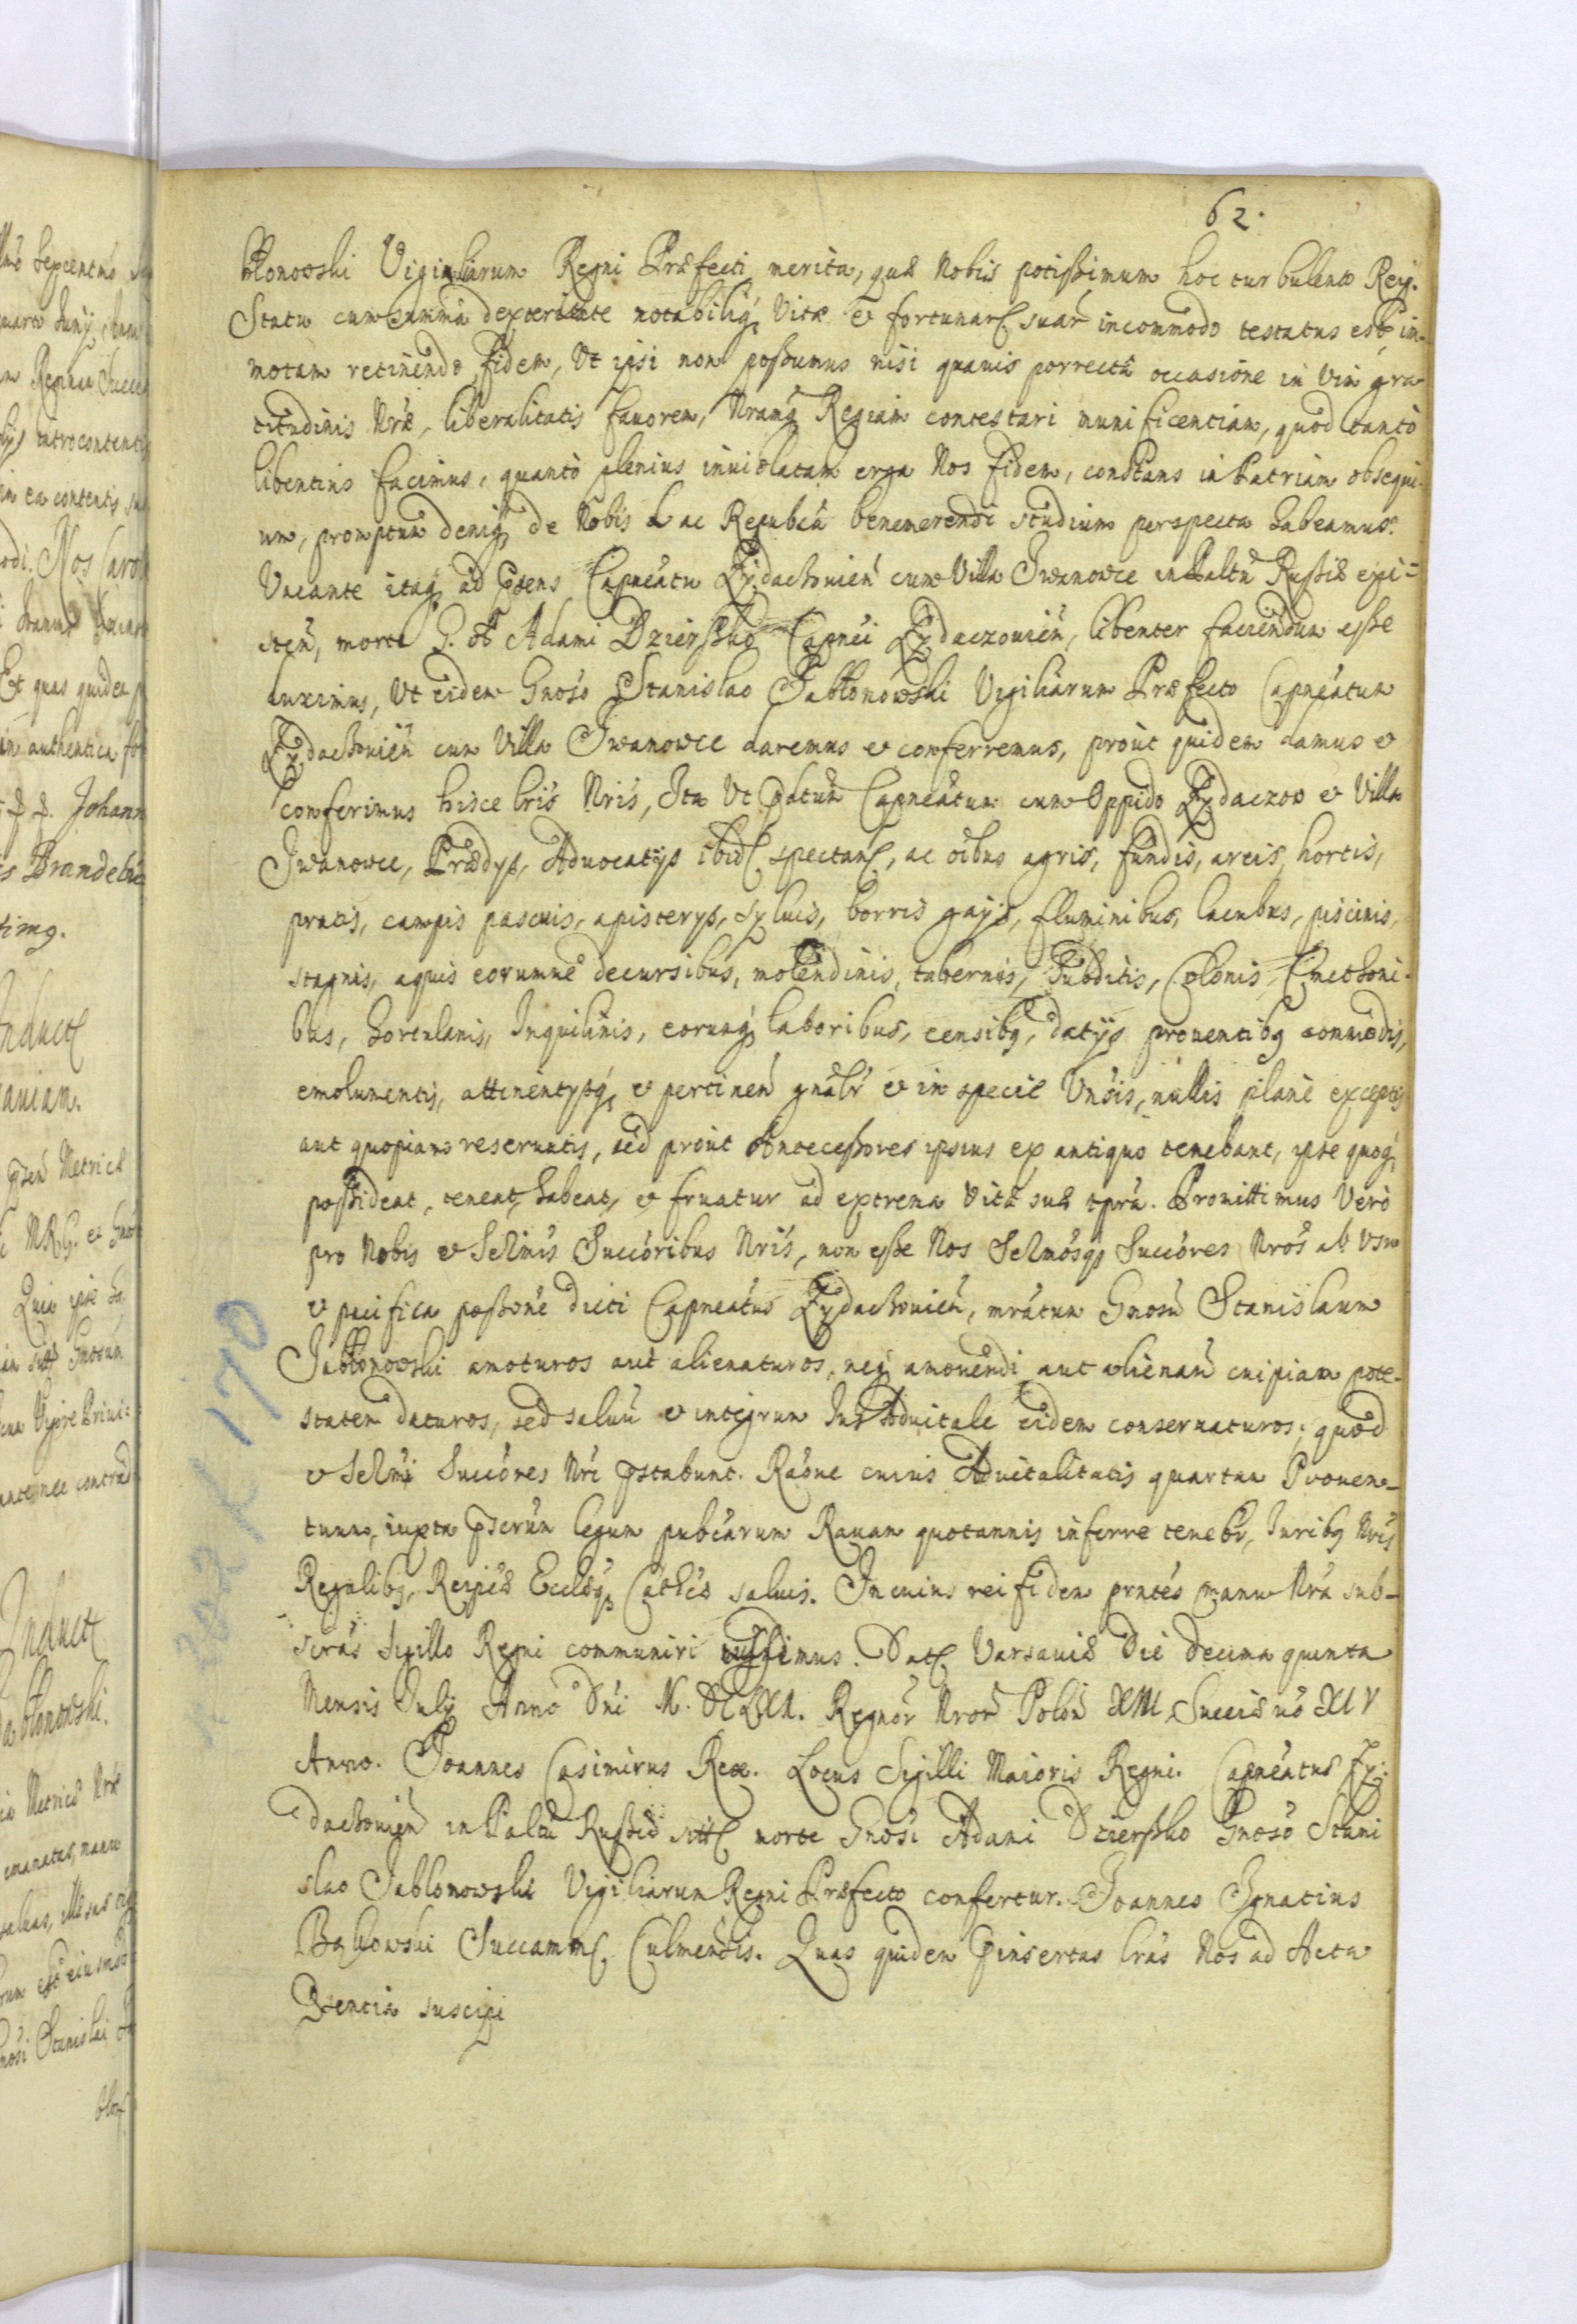 62.
błonowski Vigiliarum Regni Præfecti merita, quæ Nobis potissimum hoc turbulento Reip.
Statu cum summa dexteritate notabiliq; Vitæ et fortunar suar incommodo testatus est, im-
motam retinendo fidem, Ut ipsi non possumus nisi quauis porrecta occasione in vim gra
titudinis Nræ, liberalitatis fauorem, Nramq; Regiam contestari munificentiam, quod tantò
libentius facimus, quantò plenius inuiolatam erga Nos fidem, constans in Patriam obsequi-
um, promptum deniq; de Nobis ac Republica benemerendi studium perspecta habeamus.
Vacante itaq; ad præsens Capneatu Zydachouien cum Villa Iwanowce in Paltu Russiæ exi-
sten, morte G. olim Adami Dzierszko Capnei Zydaczouien, libenter faciendum esse
duximus, Ut eidem Gnoso Stanislao Jabłonowski Vigiliarum Præfecto Capneatum
Zydachouien cum Villa Iwanowce daremus et conferremus, prout quidem damus et
conferimus hisce lris Nris, Ita Ut dictum Capneatum cum Oppido Zydaczow et Villa
Iwanowce, Prædys, Aduocatijs ibid spectan, ac oibus agris, fundis, areis, hortis,
pratis, campis pascuis, apisterys, syluis, borris gajis, fluminibus, lacubus, piscinis,
stagnis, aquis eorumue decursibus, molendinis, tabernis, Subditis, Colonis, Cmethoni-
bus, hortulanis, Inquilinis, eorumq; laboribus, censibq, datijs prouentibq commodis,
emolumentis, attinentysq; et pertinen gnalr et in specie Unsis, nullis plane exceptis
aut quopiam reseruatis, sed prout Antecessores ipsius ex antiquo tenebant, ipse quoq;
possideat, teneat, habeat, et fruatur ad extrema Vitæ suæ tpra. Promittimus Verò
pro Nobis et Selmis Succoribus Nris, non esse Nos Selmosq; Succores Nros ab usu
et pacifica possone dicti Capneatus Zydachouien, mratum Gnosum Stanislaum
Jabłonowski amoturos aut alienaturos, neq; amouendi aut alienan cuipiam pote-
statem daturos, sed saluum et integrum Ius Aduitale eidem conseruaturos; quod
et Selmi Succores Nri pstabunt. Raone cuius Aduitalitatis quartam Prouen-
tuum, iuxta pscrum legum publcarum Rauam quotannis inferre tenebr, Iuribq Nris
Regalibq, Reipcæ Ecclæq; Cathcæ saluis. In cuius rei fidem prntes manu Nra sub-
scras Sigillo Regni communiri iussimus. Dat Varsauiæ Die Decima quinta
Mensis Julij Anno Dni M. DCLXI. Regnor Nror Polon XIII Sueciæ uo XIV
Anno. Joannes Casimirus Rex. Locus Sigilli Maioris Regni. Capneatus Zy-
dachouien in Paltu Russiæ morte Gnosi Adami Dzierszko Gnoso Stani
slao Jablonowski Vigiliarum Regni Præfecto confertur. Joannes Ignatius
Bąkowski Succam Culmensis. Quas quidem pinsertas lras Nos ad Acta
Pntia suscipi
170